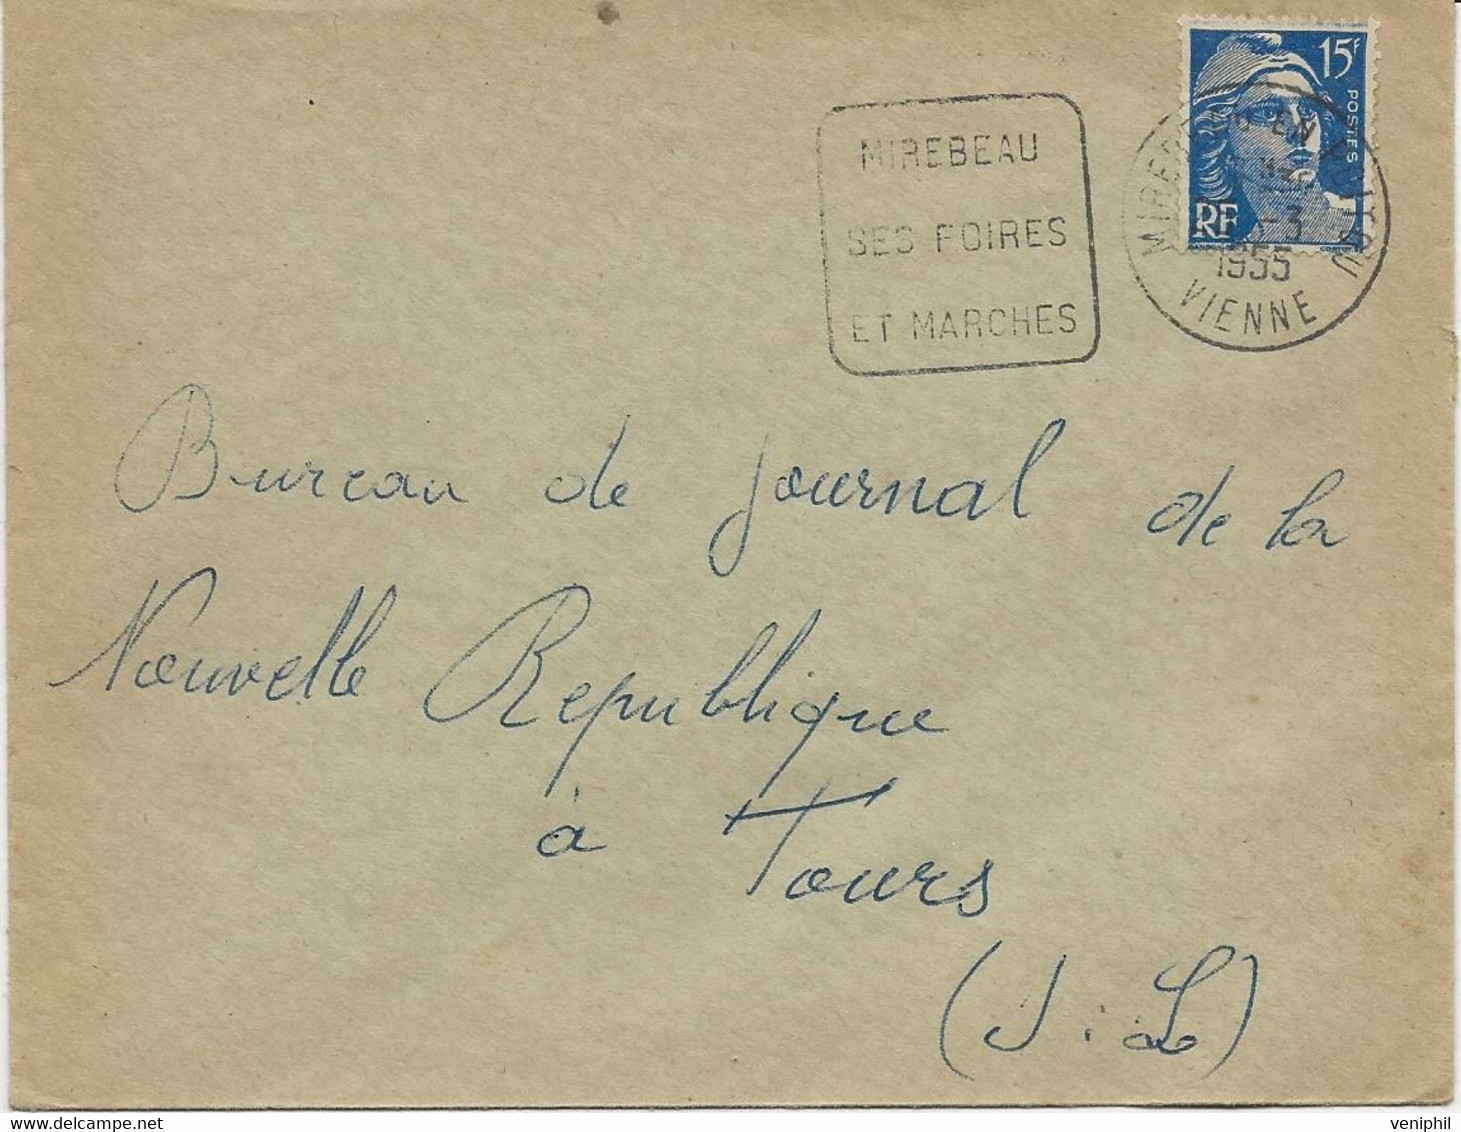 15F
POSTES
RF
MIREBEAU
SES FOIRES
ET MARCHES
MIREBEAU EN POITOU
-3
1955
VIENNE
Bureau de journal de la
Nouvelle Republique
à Tours
(I. L)
veniphil